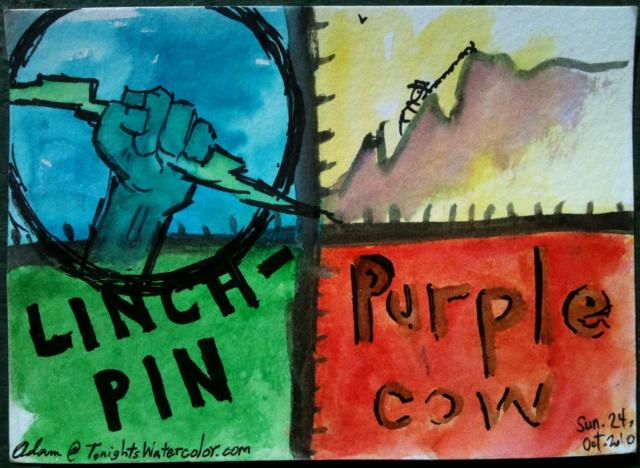 LINCH-
PIN
Purple
COW
Adam @ TonightsWatercolor.com
Sun. 24,
Oct. 2010